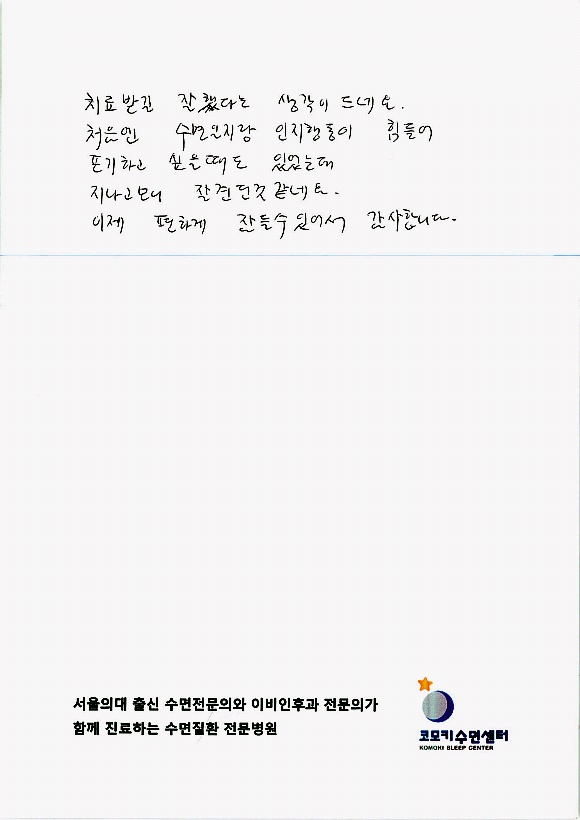 치료받길 잘했다는 생각이 드네요.
처음엔 수면일지랑 인지행동이 힘들어
포기하고 싶을때도 있었는데
지나고보니 잘견딘것 같네요.
이제 편하게 잠들수있어서 감사합니다.
서울의대 출신 수면전문의와 이비인후과 전문의가
함께 진료하는 수면질환 전문병원
코모키수면센터
KOMOKI SLEEP CENTER